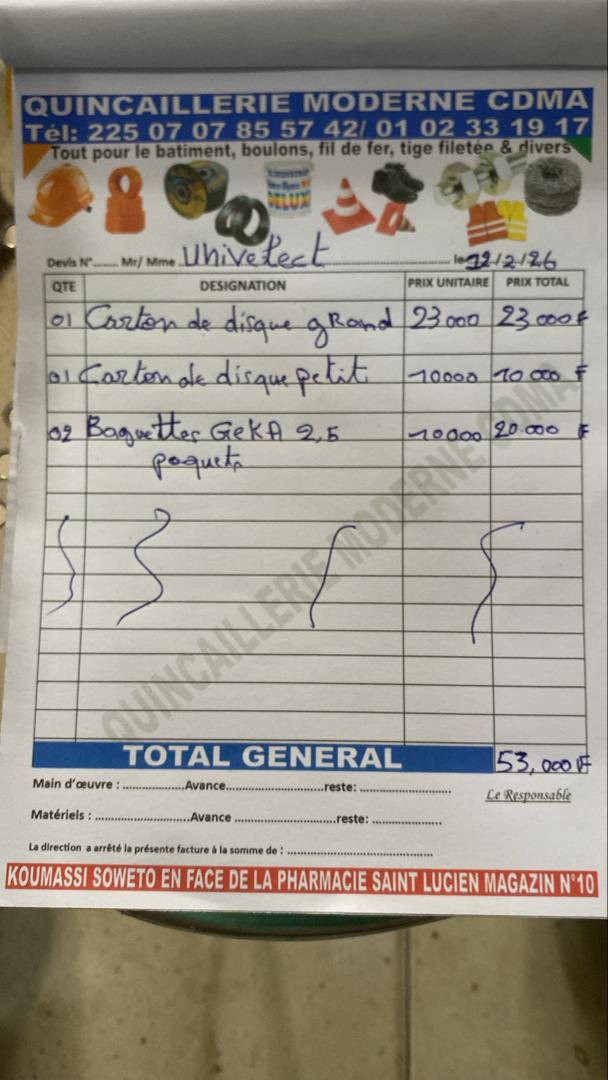 QUINCAILLERIE MODERNE CDMA
Tél: 225 07 07 85 57 42/ 01 02 33 19 17
Tout pour le batiment, boulons, fil de fer, tige filetée & divers
Devis N°........ Mr/ Mme .. Univelect .......... le 12/2/26
QTE DESIGNATION PRIX UNITAIRE PRIX TOTAL
01 Carton de disque gRand 23 000 23 000 F
01 Carton de disque petit 10000 10 000 F
02 Baguettes GeKA 2,5 10000 20.000 F
paquets
QUINCAILLERIE MODERNE CDMA
TOTAL GENERAL 53,000 F
Main d'œuvre : ..................Avance............................reste: ..........................
Le Responsable
Matériels : ...........................Avance .............................reste: ....................
La direction a arrêté la présente facture à la somme de : ..........................................
KOUMASSI SOWETO EN FACE DE LA PHARMACIE SAINT LUCIEN MAGAZIN N°10